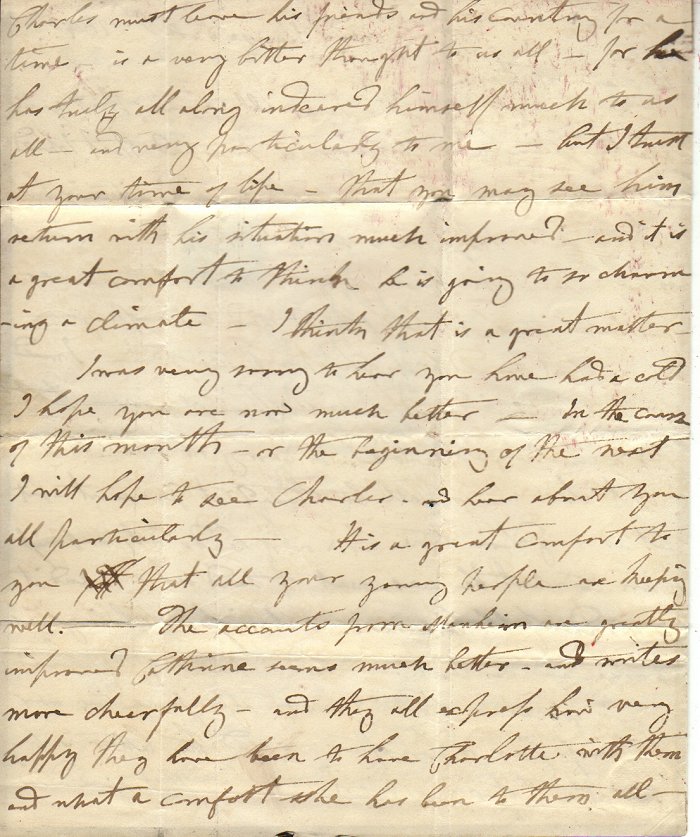 Charles must leave his friends and his country for a
time - is a very bitter thought to us all - for he
has truly all along indeared himself much to us
all - and very particularly to me - but I trust
at your time of life - that you may see him
return with his situation much improved - and it is
a great comfort to think he is going to so charm
-ing a climate - I think that is a great matter
I was very sorry to hear you have had a cold
I hope you are now much better - In the course
of this month - or the beginning of the next
I will hope to see Charles - and hear about you
all particularly - It is a great comfort to
you that all your young people are keeping
well. The accounts from Manheim are greatly
improved Cathrine seems much better - and writes
more cheerfully - and they all express how very
happy they have been to have Charlotte with them
and what a comfort she has been to them all -